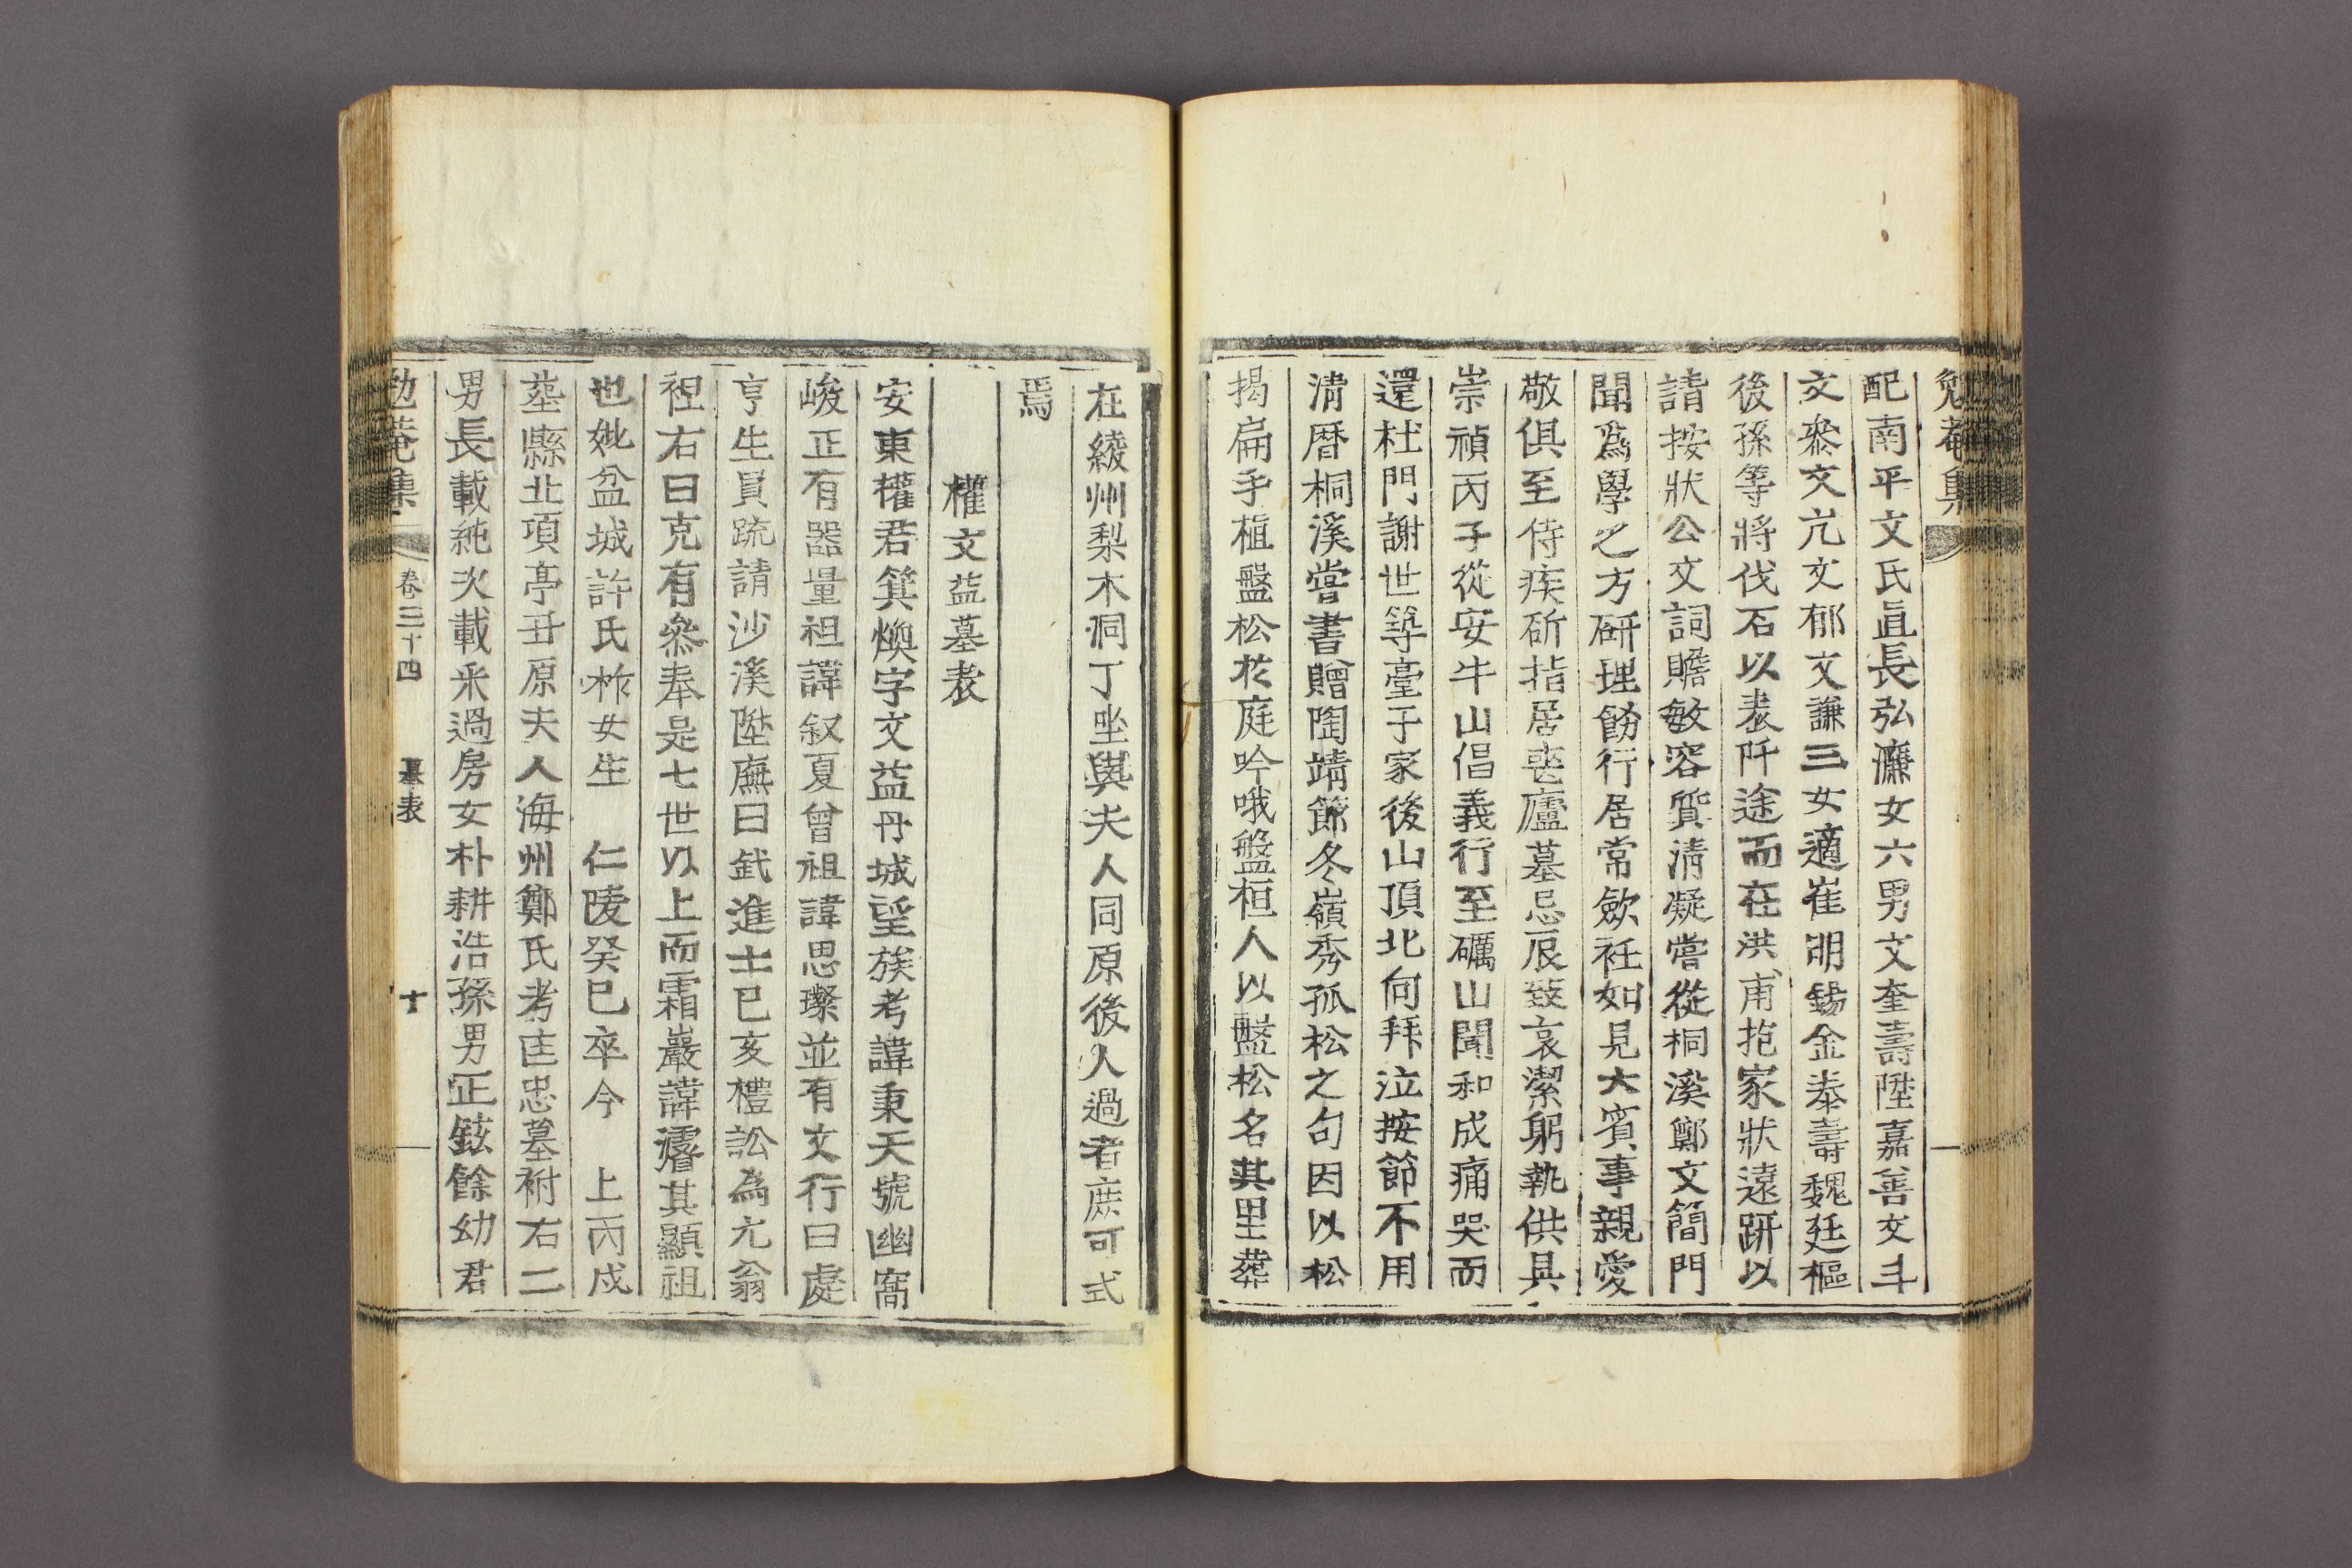 勉菴集
配南平文氏直長弘濂女六男文奎壽陞嘉善文斗
文燊文尤文郁文謙三女適崔明錫金泰壽魏廷樞
後孫等將伐石以表阡途而在洪甫抱家狀遠趼以
請按狀公文詞贍敏容質清凝嘗從桐溪鄭文簡門
聞爲學之方硏理飭行居常斂衽如見大賓事親愛
敬俱至侍疾斫指居喪廬墓忌辰致哀潔躬執供具
崇禎丙子從安牛山倡義行至礪山聞和成痛哭而
還杜門謝世築臺于家後山頂北向拜泣按節不用
清曆桐溪嘗書贈陶靖節冬嶺秀孤松之句因以松
揭扁手植盤松於庭吟哦盤桓人以盤松名其里葬
在綾州梨木洞丁坐與夫人同原後人過者庶可式
焉
權文益墓表
安東權君箕煥字文益丹城望族考諱秉天號幽窩
峻正有器量祖諱叙夏曾祖諱思璨並有文行曰處
亨生員疏請沙溪陞廡曰鉽進士己亥禮訟為尤翁
裎右曰克有叅奉是七世以上而霜巖諱濬其顯祖
也妣盆城許氏柞女生　仁陵癸巳卒今　上丙戌
塟縣北項亭丑原夫人海州鄭氏考匡忠墓祔右二
男長載純次載采過房女朴耕浩孫男正鉉餘幼君
勉菴集　卷三十四　墓表　十